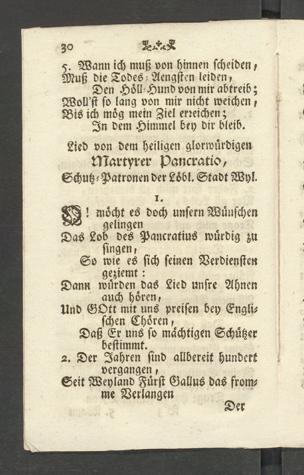 30
5. Wann ich muß von hinnen scheiden,
Muß die Todes-Aengsten leiden,
Den Höll-Hund von mir abtreib;
Woll'st so lang von mir nicht weichen,
Bis ich mög mein Ziel erreichen;
In dem Himmel bey dir bleib.
Lied von dem heiligen glorwürdigen
Martyrer Pancratio,
Schutz-Patronen der Löbl. Stadt Wyl.
1.
O! möcht es doch unsern Wünschen
gelingen
Das Lob des Pancratius würdig zu
singen,
So wie es sich seinen Verdiensten
geziemt:
Dann würden das Lied unsre Ahnen
auch hören,
Und GOtt mit uns preisen bey Engli-
schen Chören,
Daß Er uns so mächtigen Schützer
bestimmt.
2. Der Jahren sind allbereit hundert
vergangen,
Seit Weyland Fürst Gallus das from-
me Verlangen
Der